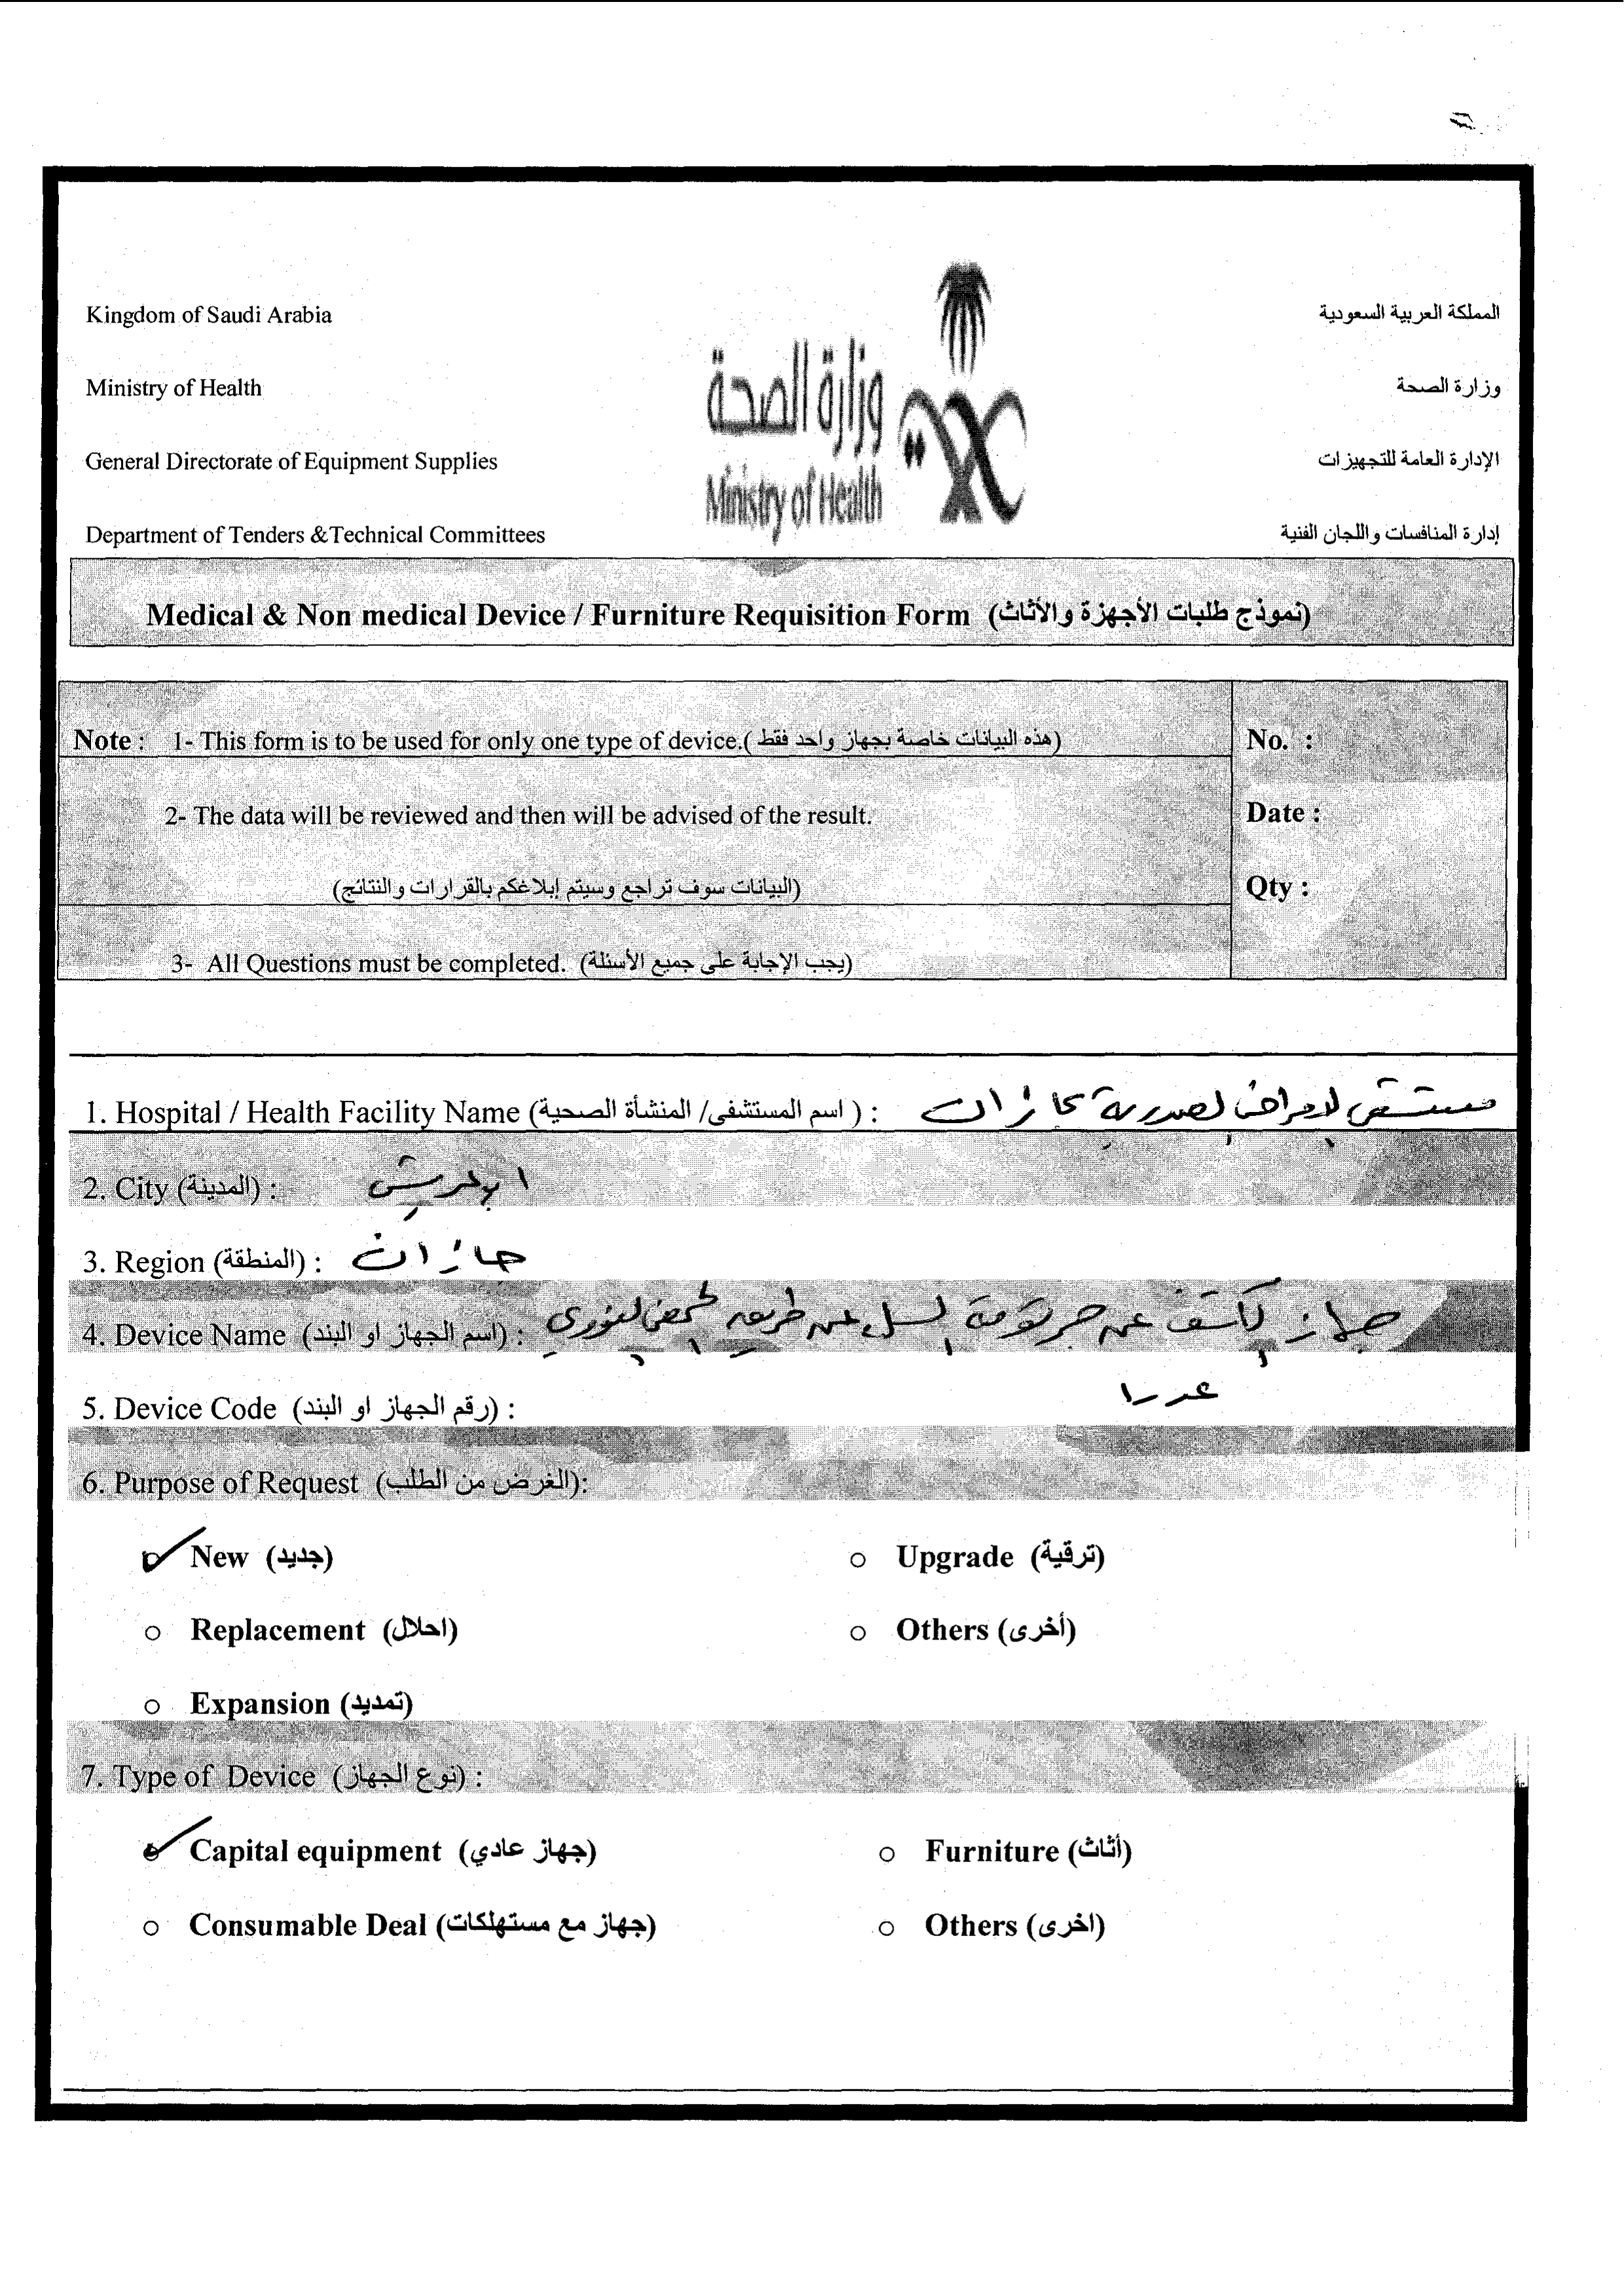 Kingdom of Saudi Arabia
المملكة العربية السعودية
Ministry of Health
وزارة الصحة
General Directorate of Equipment Supplies
الإدارة العامة للتجهيزات
Department of Tenders &Technical Committees
إدارة المنافسات واللجان الفنية
وزارة الصحة
Ministry of Health
Medical & Non medical Device / Furniture Requisition Form (نموذج طلبات الأجهزة والأثاث)
Note : 1- This form is to be used for only one type of device.( هذه البيانات خاصة بجهاز واحد فقط)
2- The data will be reviewed and then will be advised of the result.
(البيانات سوف تراجع وسيتم إبلاغكم بالقرارات والنتائج)
3- All Questions must be completed. (يجب الإجابة على جميع الأسئلة)
No. :
Date :
Qty :
1. Hospital / Health Facility Name (اسم المستشفى/ المنشأة الصحية ) : مستشفى الامراض الصدرية بجازان
2. City (المدينة) : ابوعريش
3. Region (المنطقة) : جازان
4. Device Name (اسم الجهاز او البند) : جهاز كاشف عن جرثومة السل عن طريق الحمض النووي
5. Device Code (رقم الجهاز او البند) :
6. Purpose of Request (الغرض من الطلب):
New (جديد)
Upgrade (ترقية)
Replacement (احلال)
Others (أخرى)
Expansion (تمديد)
7. Type of Device (نوع الجهاز) :
Capital equipment (جهاز عادي)
Furniture (أثاث)
Consumable Deal (جهاز مع مستهلكات)
Others (اخرى)